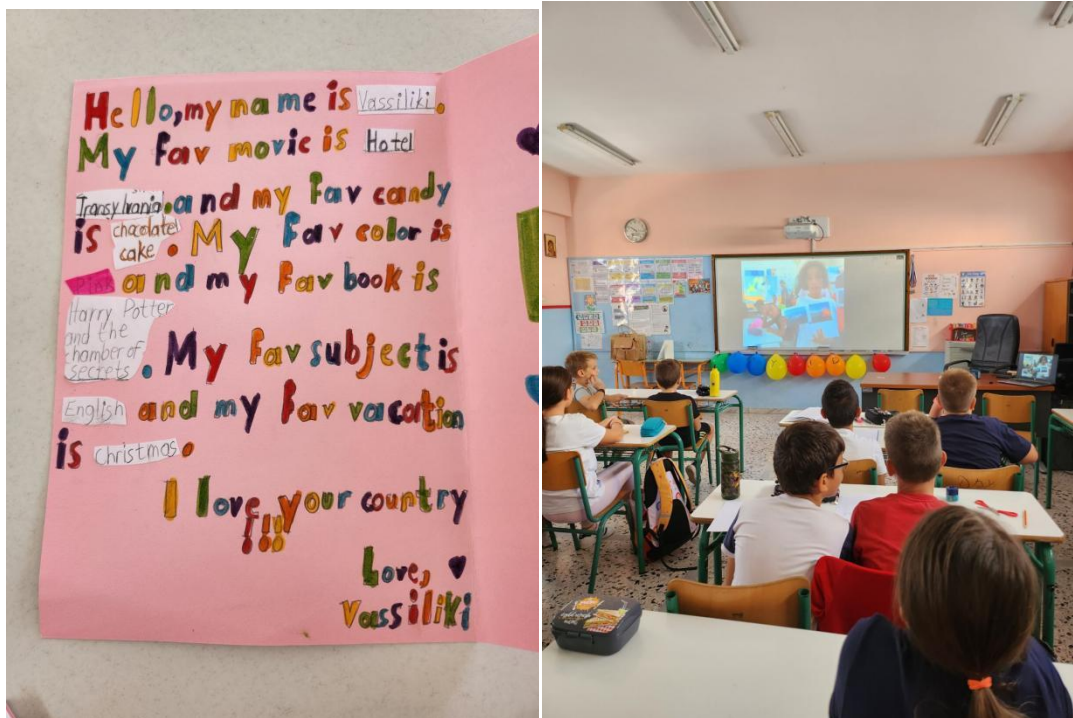 Hello, my name is Vassiliki.
My fav movie is Hotel
Transylvania. and my fav candy
is chocolate cake. My fav color is
Pink and my fav book is
Harry Potter
and the
chamber of
secrets. My fav subject is
English and my fav vacation
is christmas.
I love your country
!!!
Love, ♥
Vassiliki